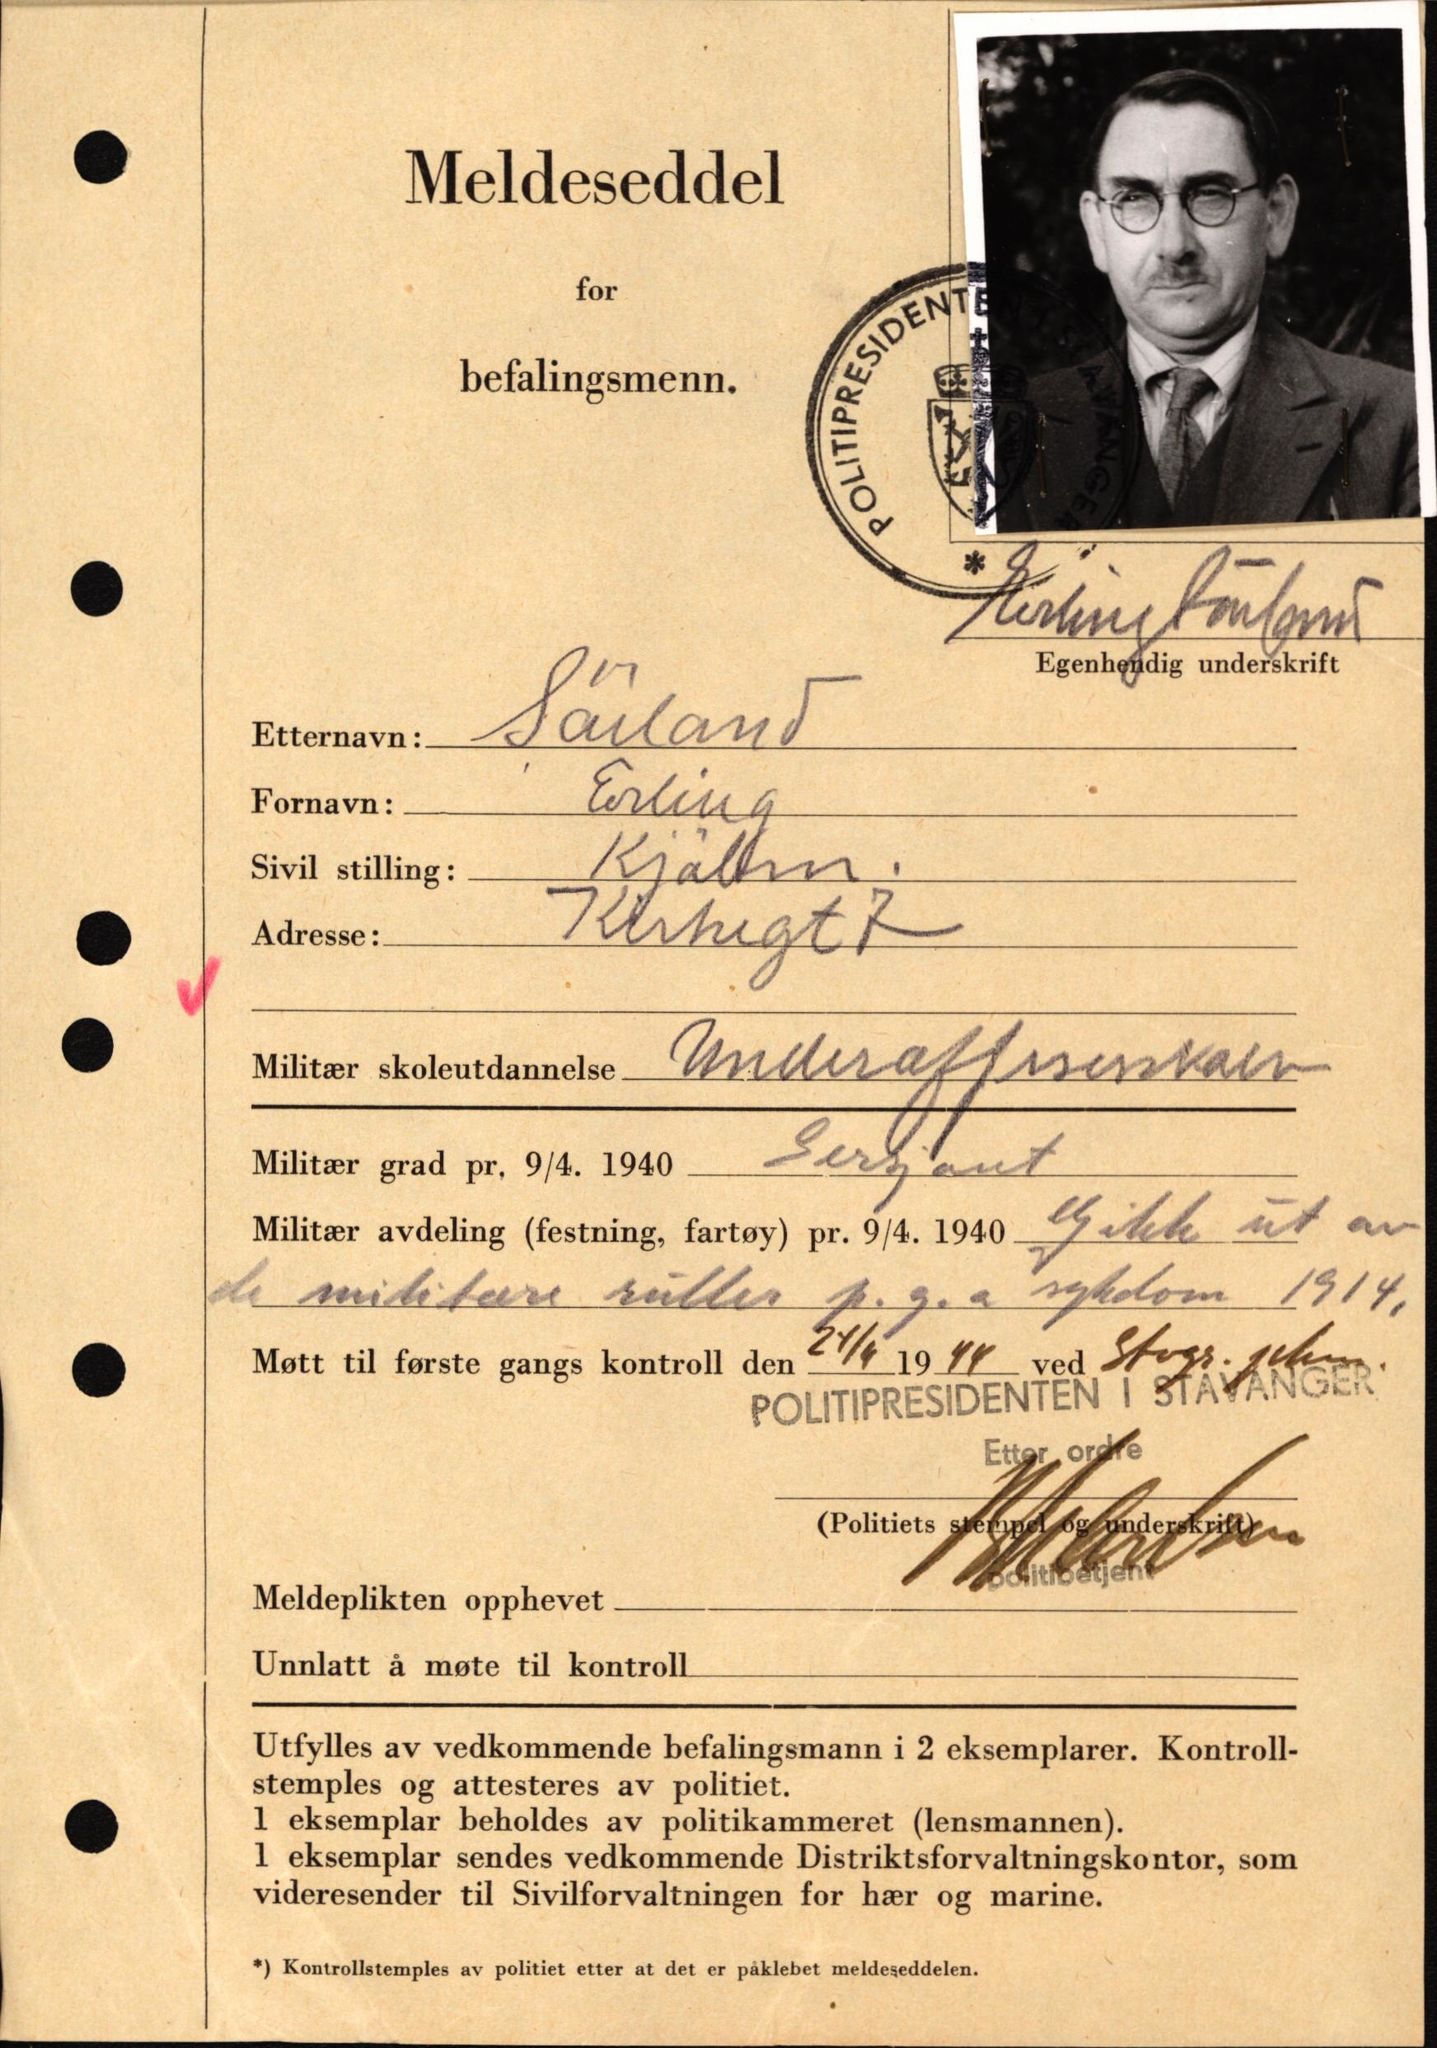 Meldeseddel
for
befalingsmenn.
POLITIPRESIDENTEN I STAVANGER
*
Erling Sörland
Egenhendig underskrift
Etternavn: Sörland
Fornavn: Erling
Sivil stilling: Kjölm.
Adresse: Kirkegt 7
Militær skoleutdannelse Underoffiserskolen
Militær grad pr. 9/4. 1940 Sersjant
Militær avdeling (festning, fartøy) pr. 9/4. 1940 Gikk ut av
de militære ruller p.g.a sykdom 1914.
Møtt til første gangs kontroll den 24/4 1944 ved Stvgr.
POLITIPRESIDENTEN I STAVANGER
Etter ordre
(Politiets stempel og underskrift)
politibetjent
Meldeplikten opphevet
Unnlatt å møte til kontroll
Utfylles av vedkommende befalingsmann i 2 eksemplarer. Kontroll-
stemples og attesteres av politiet.
1 eksemplar beholdes av politikammeret (lensmannen).
1 eksemplar sendes vedkommende Distriktsforvaltningskontor, som
videresender til Sivilforvaltningen for hær og marine.
*) Kontrollstemples av politiet etter at det er påklebet meldeseddelen.